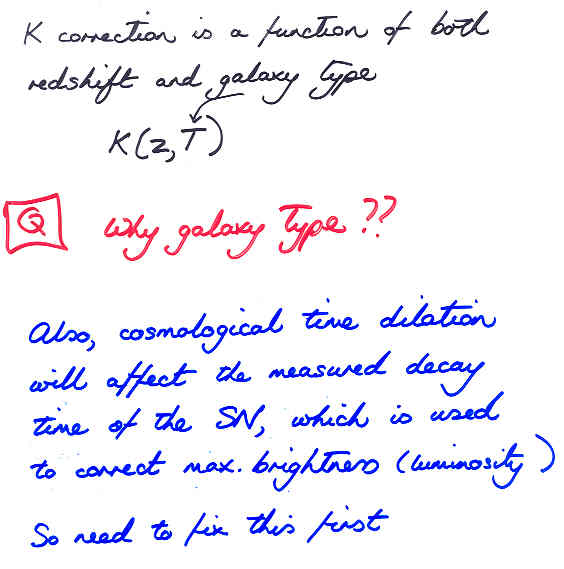 K correction is a function of both
redshift and galaxy type
K(z,T)
Q Why galaxy type??
Also, cosmological time dilation
will affect the measured decay
time of the SN, which is used
to correct max. brightness (luminosity)
So need to fix this first